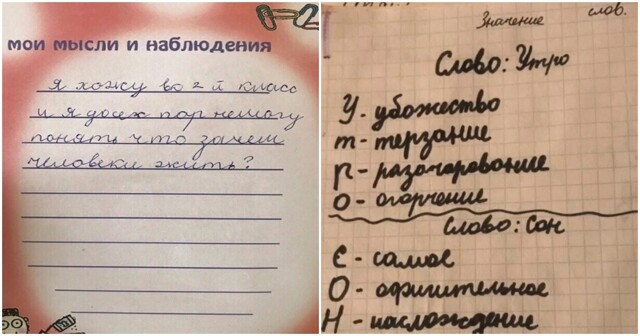 мои мысли и наблюдения
Я хожу во 2 й класс
и я досех пор немогу
понять что зачем
человеки жить?
Значение слов.
Слово: Утро
У - убожество
т - терзание
Р - разочарование
О - огорчение
Слово: Сон
С - самое
О - офигительное
Н - наслождение